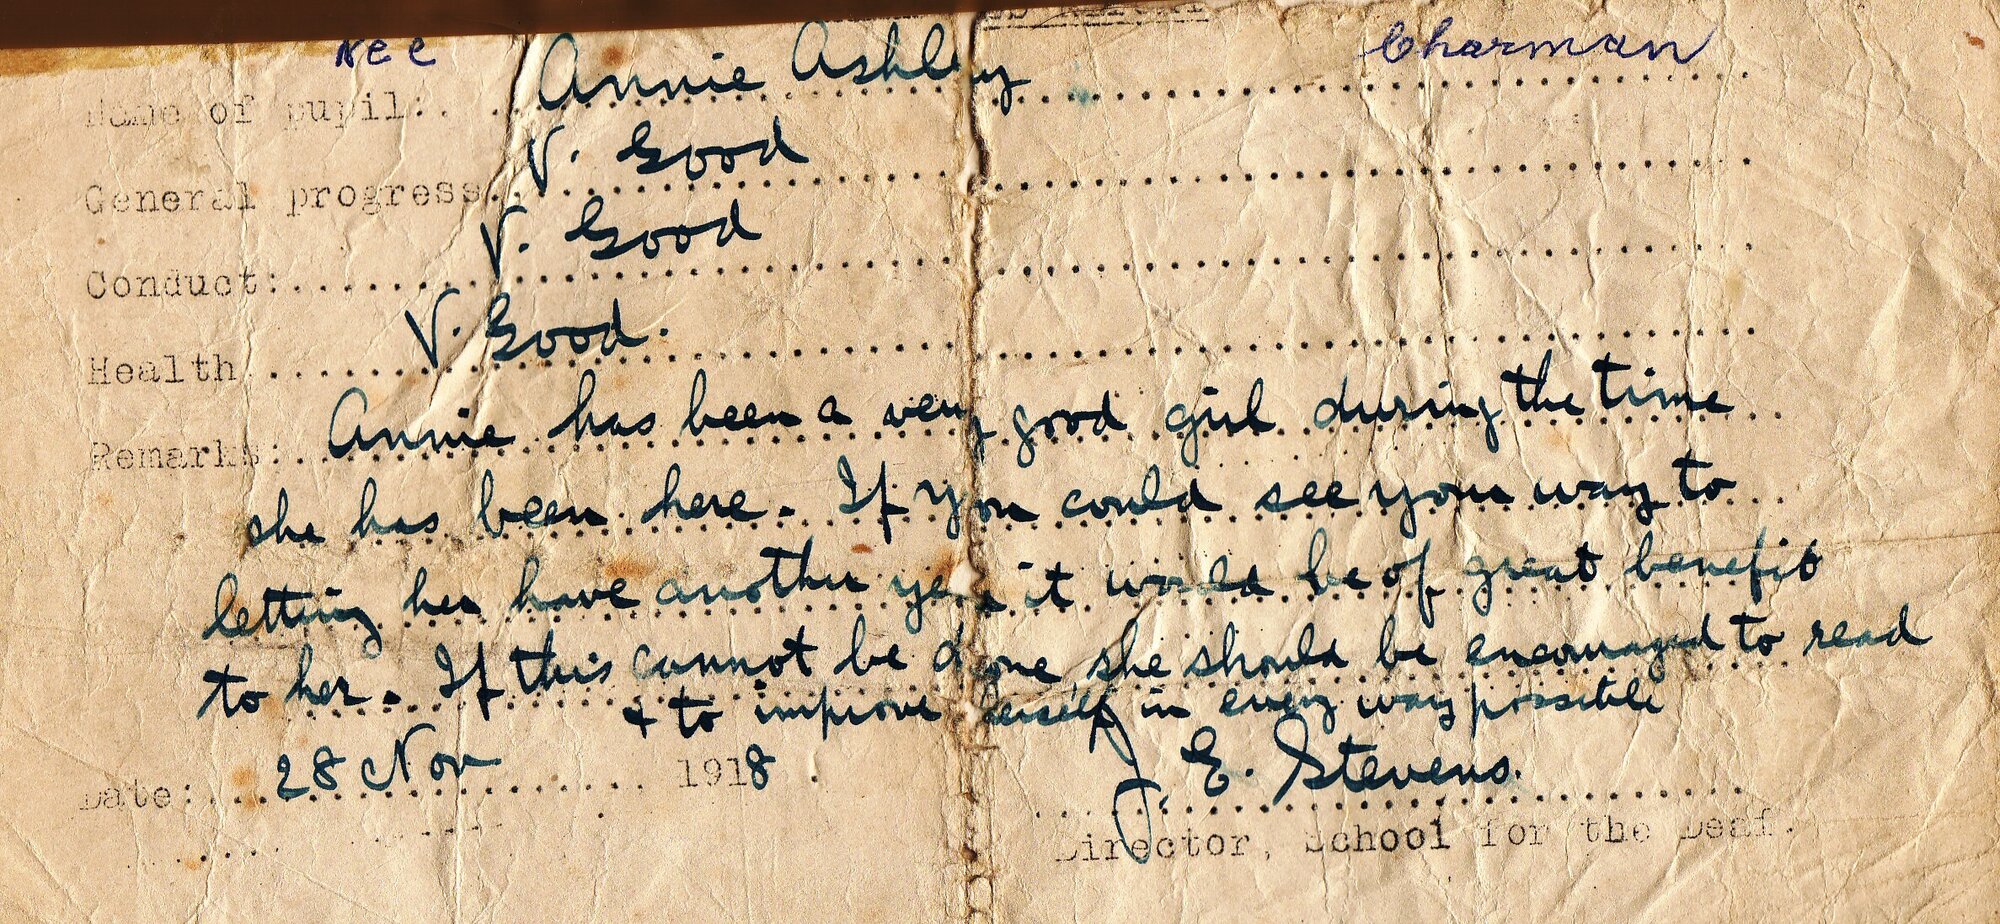 Nee Charman
Name of pupil: Annie Ashley
General progress V. Good
Conduct: V. Good
Health V. Good.
Remarks: Annie has been a very good girl during the time
she has been here. If you could see your way to
letting her have another year it would be of great benefit
to her. If this cannot be done, she should be encouraged to read
& to improve herself in every way possible
Date: 28 Nov 1918.
J. E. Stevens.
Director, School for the Deaf.